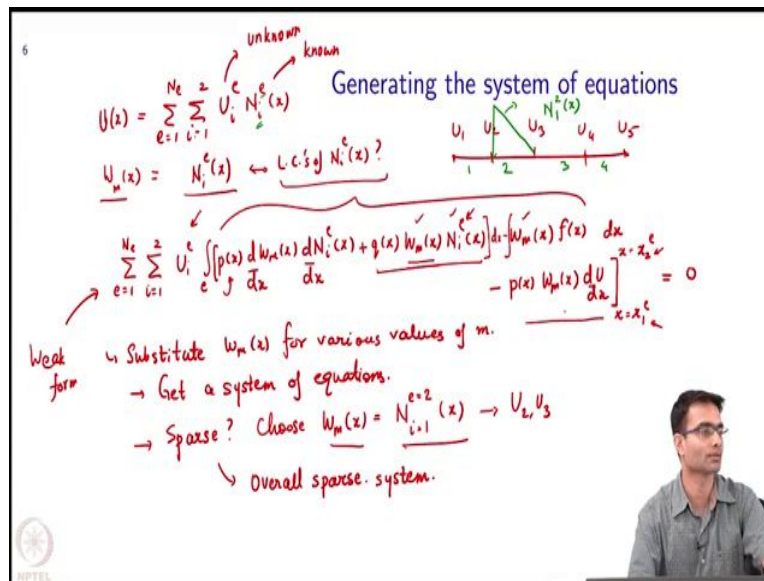 6
unknown
known
Generating the system of equations
U(x) = Σ_{e=1}^{N_e} Σ_{i=1}^{2} U_i^e N_i^e(x)
N_1^2(x)
U_1 U_2 U_3 U_4 U_5
1 2 3 4
W_m(x) = N_i^e(x) ↔ L.C.'s of N_i^e(x)?
Σ_{e=1}^{N_e} Σ_{i=1}^{2} U_i^e ∫_e [p(x) d/dx W_m(x) d/dx N_i^e(x) + q(x) W_m(x) N_i^e(x)] dx - ∫ W_m(x) f(x) dx
- p(x) W_m(x) dU/dx ]_{x=x_1^e}^{x=x_2^e} = 0
Weak form
↳ Substitute W_m(x) for various values of m.
→ Get a system of equations.
→ Sparse? Choose W_m(x) = N_{i=1}^{e=2}(x) → U_2, U_3
↘ Overall sparse system.
NPTEL